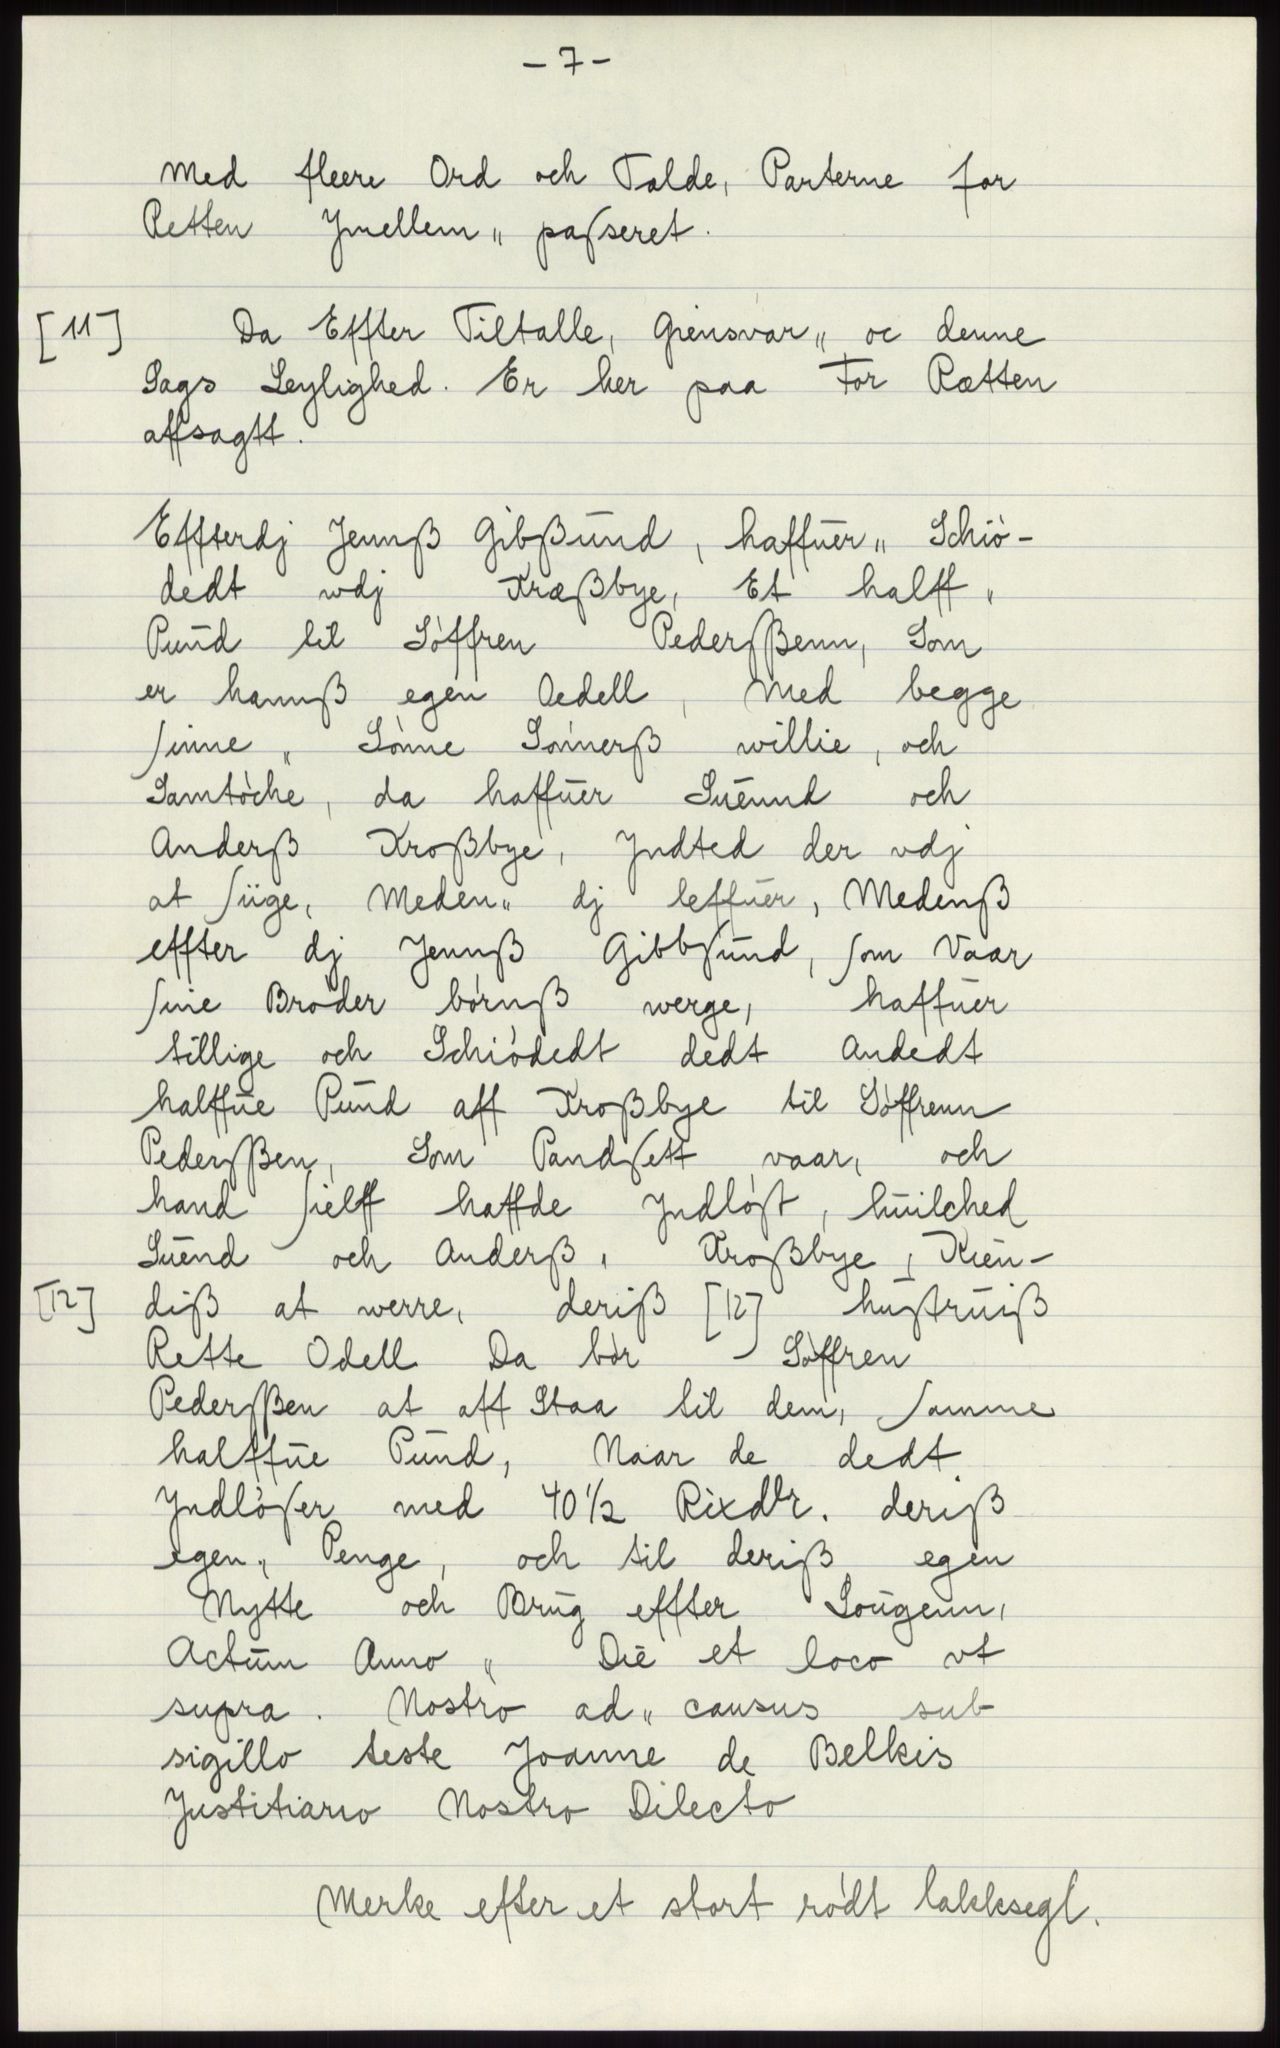 - 7 -
Med fleere Ord och Talde, Parterne for
Retten Jmellem „ paſseret.
[11] Da Effter Tiltalle, Giensvar „ oc denne
Sags Leylighed. Er her paa For Rætten
affsagtt.
Effterdj Jennß Gibßund, haffuer „ Schiø-
dedt wdj Kraßbye, Et halff „
Pund til Søffren Pederſßenn, Som
er hannß egen Oedell, Med begge
ſinne „ Sønne Sønnerß willie, och
Samtøche, da haffuer Suennd och
Anderß Kroßbye, Jndted der vdj
at ſiige, Meden „ dj leffuer, Medenß
effter dj Jennß Gibbſund, ſom Vaar
ſine Broder børnß werge, haffuer
tillige och Schiødedt dedt Andedt
halffue Pund aff Kroßbye til Søffrenn
Pederſßen, Som Pandſett vaar, och
hand ſielff haffde Jndløſt, huilched
Suend och Anderß, Kroßbye, Kien-
[12] diß at werre, deriß [12] huſtruiß
Rette Odell Da bør Søffren
Pederſßen at aff Staa til dem, ſamme
halffue Pund, Naar de dedt
Jndløſer med 40 1/2 Rixdlr. deriß
egen „ Penge, och til deriß egen
Nytte och Brug effter Lougenn,
Actum Anno „ Die et loco vt
supra. Nostro ad „ causus sub
sigillo teste Joanne de Belkis
Justitiario Nostro Dilecto
Merke efter et stort rødt lakksegl.